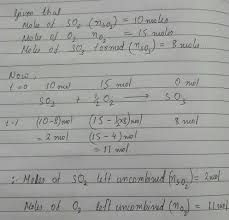 Given that
Moles of SO2 (nSO2) = 10 moles
Moles of O2 nO2 = 15 moles
Moles of SO3 formed (nSO3) = 8 moles
Now,
t=0 10 mol 15 mol 0 mol
SO2 + 1/2 O2 → SO3
t=t (10-8) mol (15 - 1/2x8) mol 8 mol
= 2 mol (15-4) mol
= 11 mol
∴ Moles of SO2 left uncombined (nSO2) = 2 mol
Moles of O2 left uncombined (nO2) = 11 mol